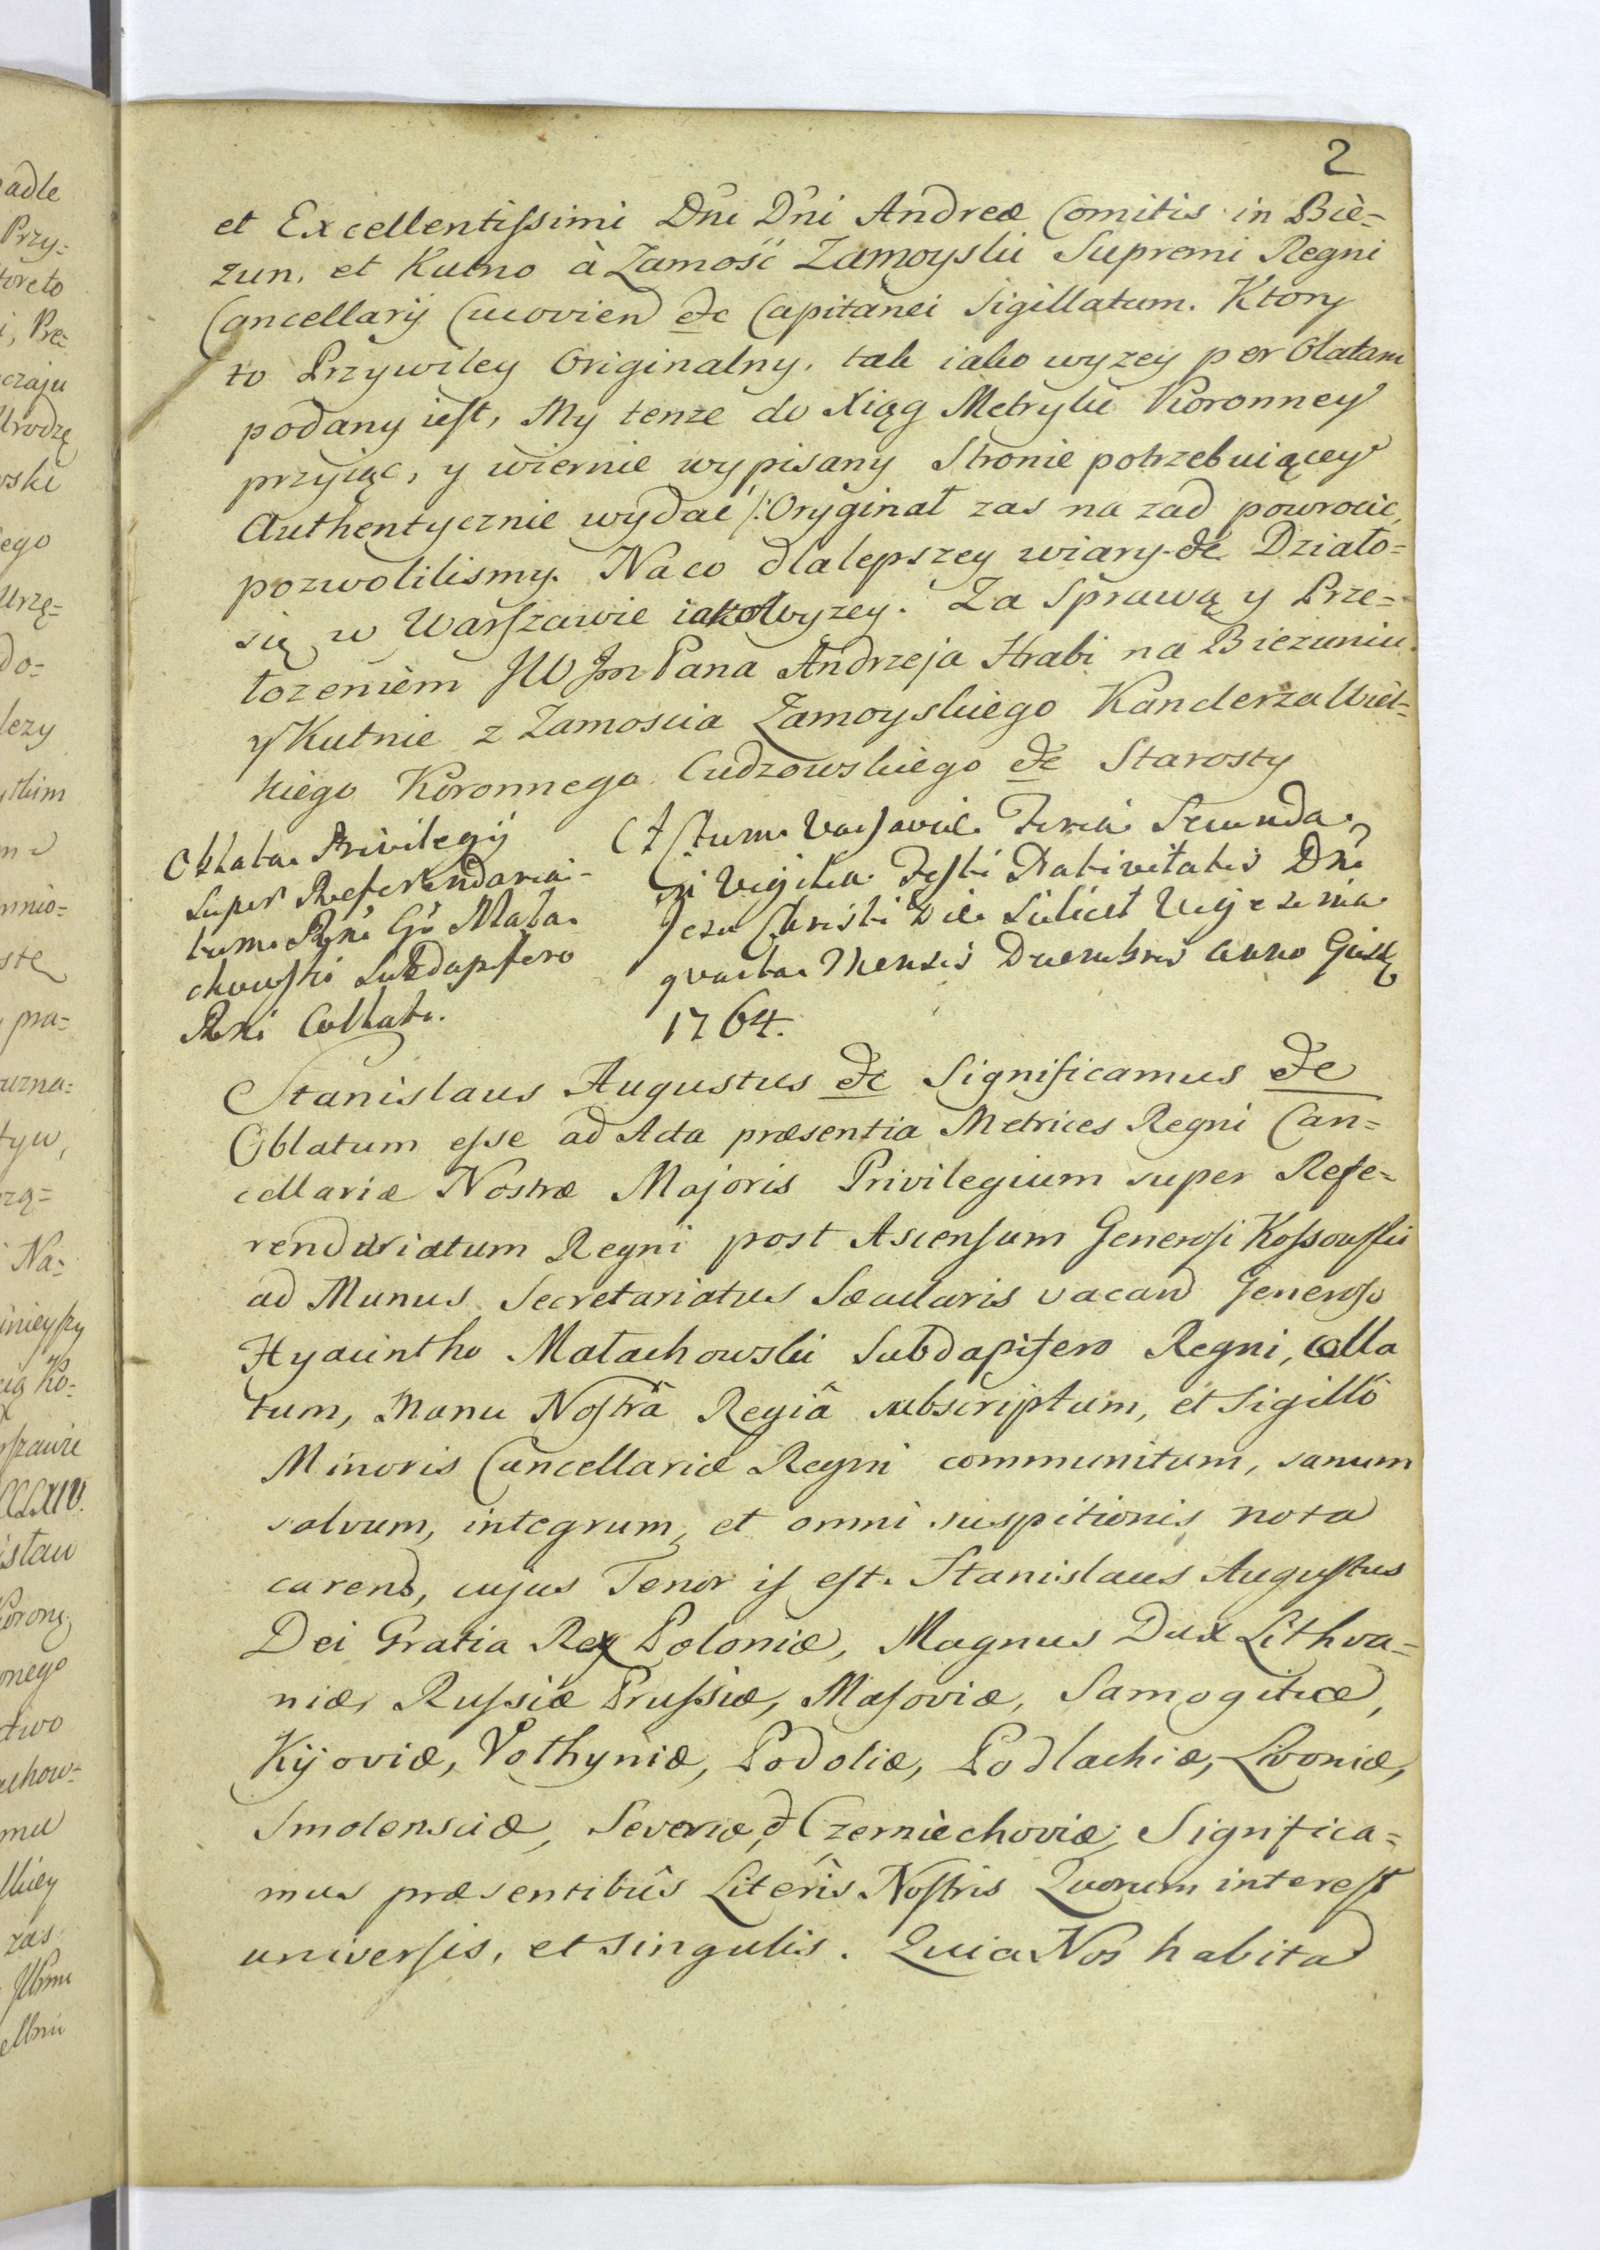 2
et Excellentissimi Dni Dni Andreæ Comitis in Biè=
zun. et Kutno à Zamość Zamoyski Supremi Regni
Cancellarij &c Capitanei Sigillatum. Ktory
to Przywiley Originalny, tak iako wyzey per Oblatam
podany iest, My tenze do Xiąg Metryki Koronney
przyiąc, y wiernie wypisany Stronie potrzebuiącey
Authentycznie wydać /: Oryginał zas na zad powrocic,
pozwolilismy. Naco dlalepszey wiary &c Działo=
się w Warszawie iakoWyzey. Za Sprawą y Prze=
łozeniem JW Jm Pana Andrzeja Hrabi na Biezuniu
y Kutnie z Zamoscia Zamoyskiego Kanclerza Wiel=
kiego Koronnego &c Starosty
Oblata Privilegij
super Referendaria-
tum Rgni Gso Mała-
chowski Subdapifero
Rgni Collati.
Actum Varsaviæ Feria Secunda
in Vigilia Festi Nativitatis Dni
Jesu Christi die Scilicet Vigesima
quarta Mensis Decembris Anno
1764.
Stanislaus Augustus &c Significamus &c
Oblatum esse ad Acta præsentia Metrices Regni Can=
cellariæ Nostræ Majoris Privilegium super Refe=
rendariatum Regni post Ascensum Generosi Kossowski
ad Munus Secretariatus Sæcularis vacand Generoso
Hyacintho Małachowski Subdapifero Regni, colla
tum, Manu Nostrâ Regiâ subscriptum, et Sigillô
Minoris Cancellariæ Regni communitum, sanum
salvum, integrum, et omni suspitionis nota
carens, cujus Tenor is est. Stanislaus Augustus
Dei Gratia Rex Poloniæ, Magnus Dux Lithva=
niæ, Russiæ Prussiæ, Masoviæ, Samogitiæ,
Kijoviæ, Volhyniæ, Podoliæ, Podlachiæ, Livoniæ,
Smolensciæ, Severiæ, & Czerniechoviæ, Significa=
mus præsentibûs Literîs Nostris Quorum interest
universis, et singulis. Quia Nos habita